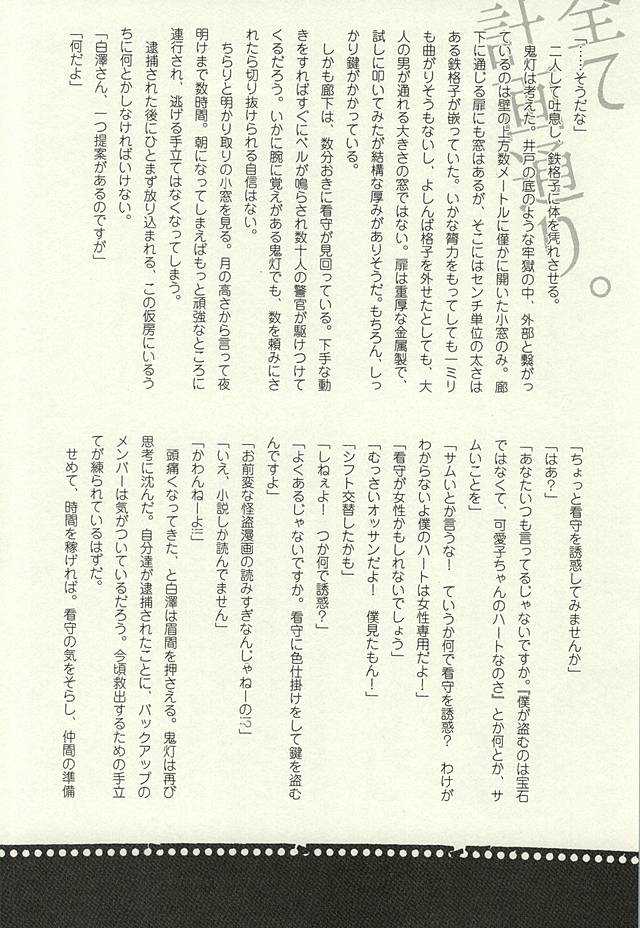 全て
計画通り。
「……そうだな」
　二人して吐息し、鉄格子に体を凭れさせる。
　鬼灯は考えた。井戸の底のような牢獄の中、外部と繋がっ
ているのは壁の上方数メートルに僅かに開いた小窓のみ。廊
下に通じる扉にも窓はあるが、そこにはセンチ単位の太さは
ある鉄格子が嵌っていた。いかな膂力をもってしても一ミリ
も曲がりそうもないし、よしんば格子を外せたとしても、大
人の男が通れる大きさの窓ではない。扉は重厚な金属製で、
試しに叩いてみたが結構な厚みがありそうだ。もちろん、しっ
かり鍵がかかっている。
　しかも廊下は、数分おきに看守が見回っている。下手な動
きをすればすぐにベルが鳴らされ数十人の警官が駆けつけて
くるだろう。いかに腕に覚えがある鬼灯でも、数を頼みにさ
れたら切り抜けられる自信はない。
　ちらりと明かり取りの小窓を見る。月の高さから言って夜
明けまで数時間。朝になってしまえばもっと頑強なところに
連行され、逃げる手立てはなくなってしまう。
　逮捕された後にひとまず放り込まれる、この仮房にいるう
ちに何とかしなければいけない。
「白澤さん、一つ提案があるのですが」
「何だよ」
「ちょっと看守を誘惑してみませんか」
「はあ？」
「あなたいつも言ってるじゃないですか。『僕が盗むのは宝石
ではなくて、可愛子ちゃんのハートなのさ』とか何とか、サ
ムいことを」
「サムいとか言うな！　ていうか何で看守を誘惑？　わけが
わからないよ僕のハートは女性専用だよ！」
「看守が女性かもしれないでしょう」
「むっさいオッサンだよ！　僕見たもん！」
「シフト交替したかも」
「しねぇよ！　つか何で誘惑？」
「よくあるじゃないですか。看守に色仕掛けをして鍵を盗む
んですよ」
「お前変な怪盗漫画の読みすぎなんじゃねーの!?」
「いえ、小説しか読んでません」
「かわんねーよ!!」
　頭痛くなってきた、と白澤は眉間を押さえる。鬼灯は再び
思考に沈んだ。自分達が逮捕されたことに、バックアップの
メンバーは気がついているだろう。今頃救出するための手立
てが練られているはずだ。
　せめて、時間を稼げれば。看守の気をそらし、仲間の準備